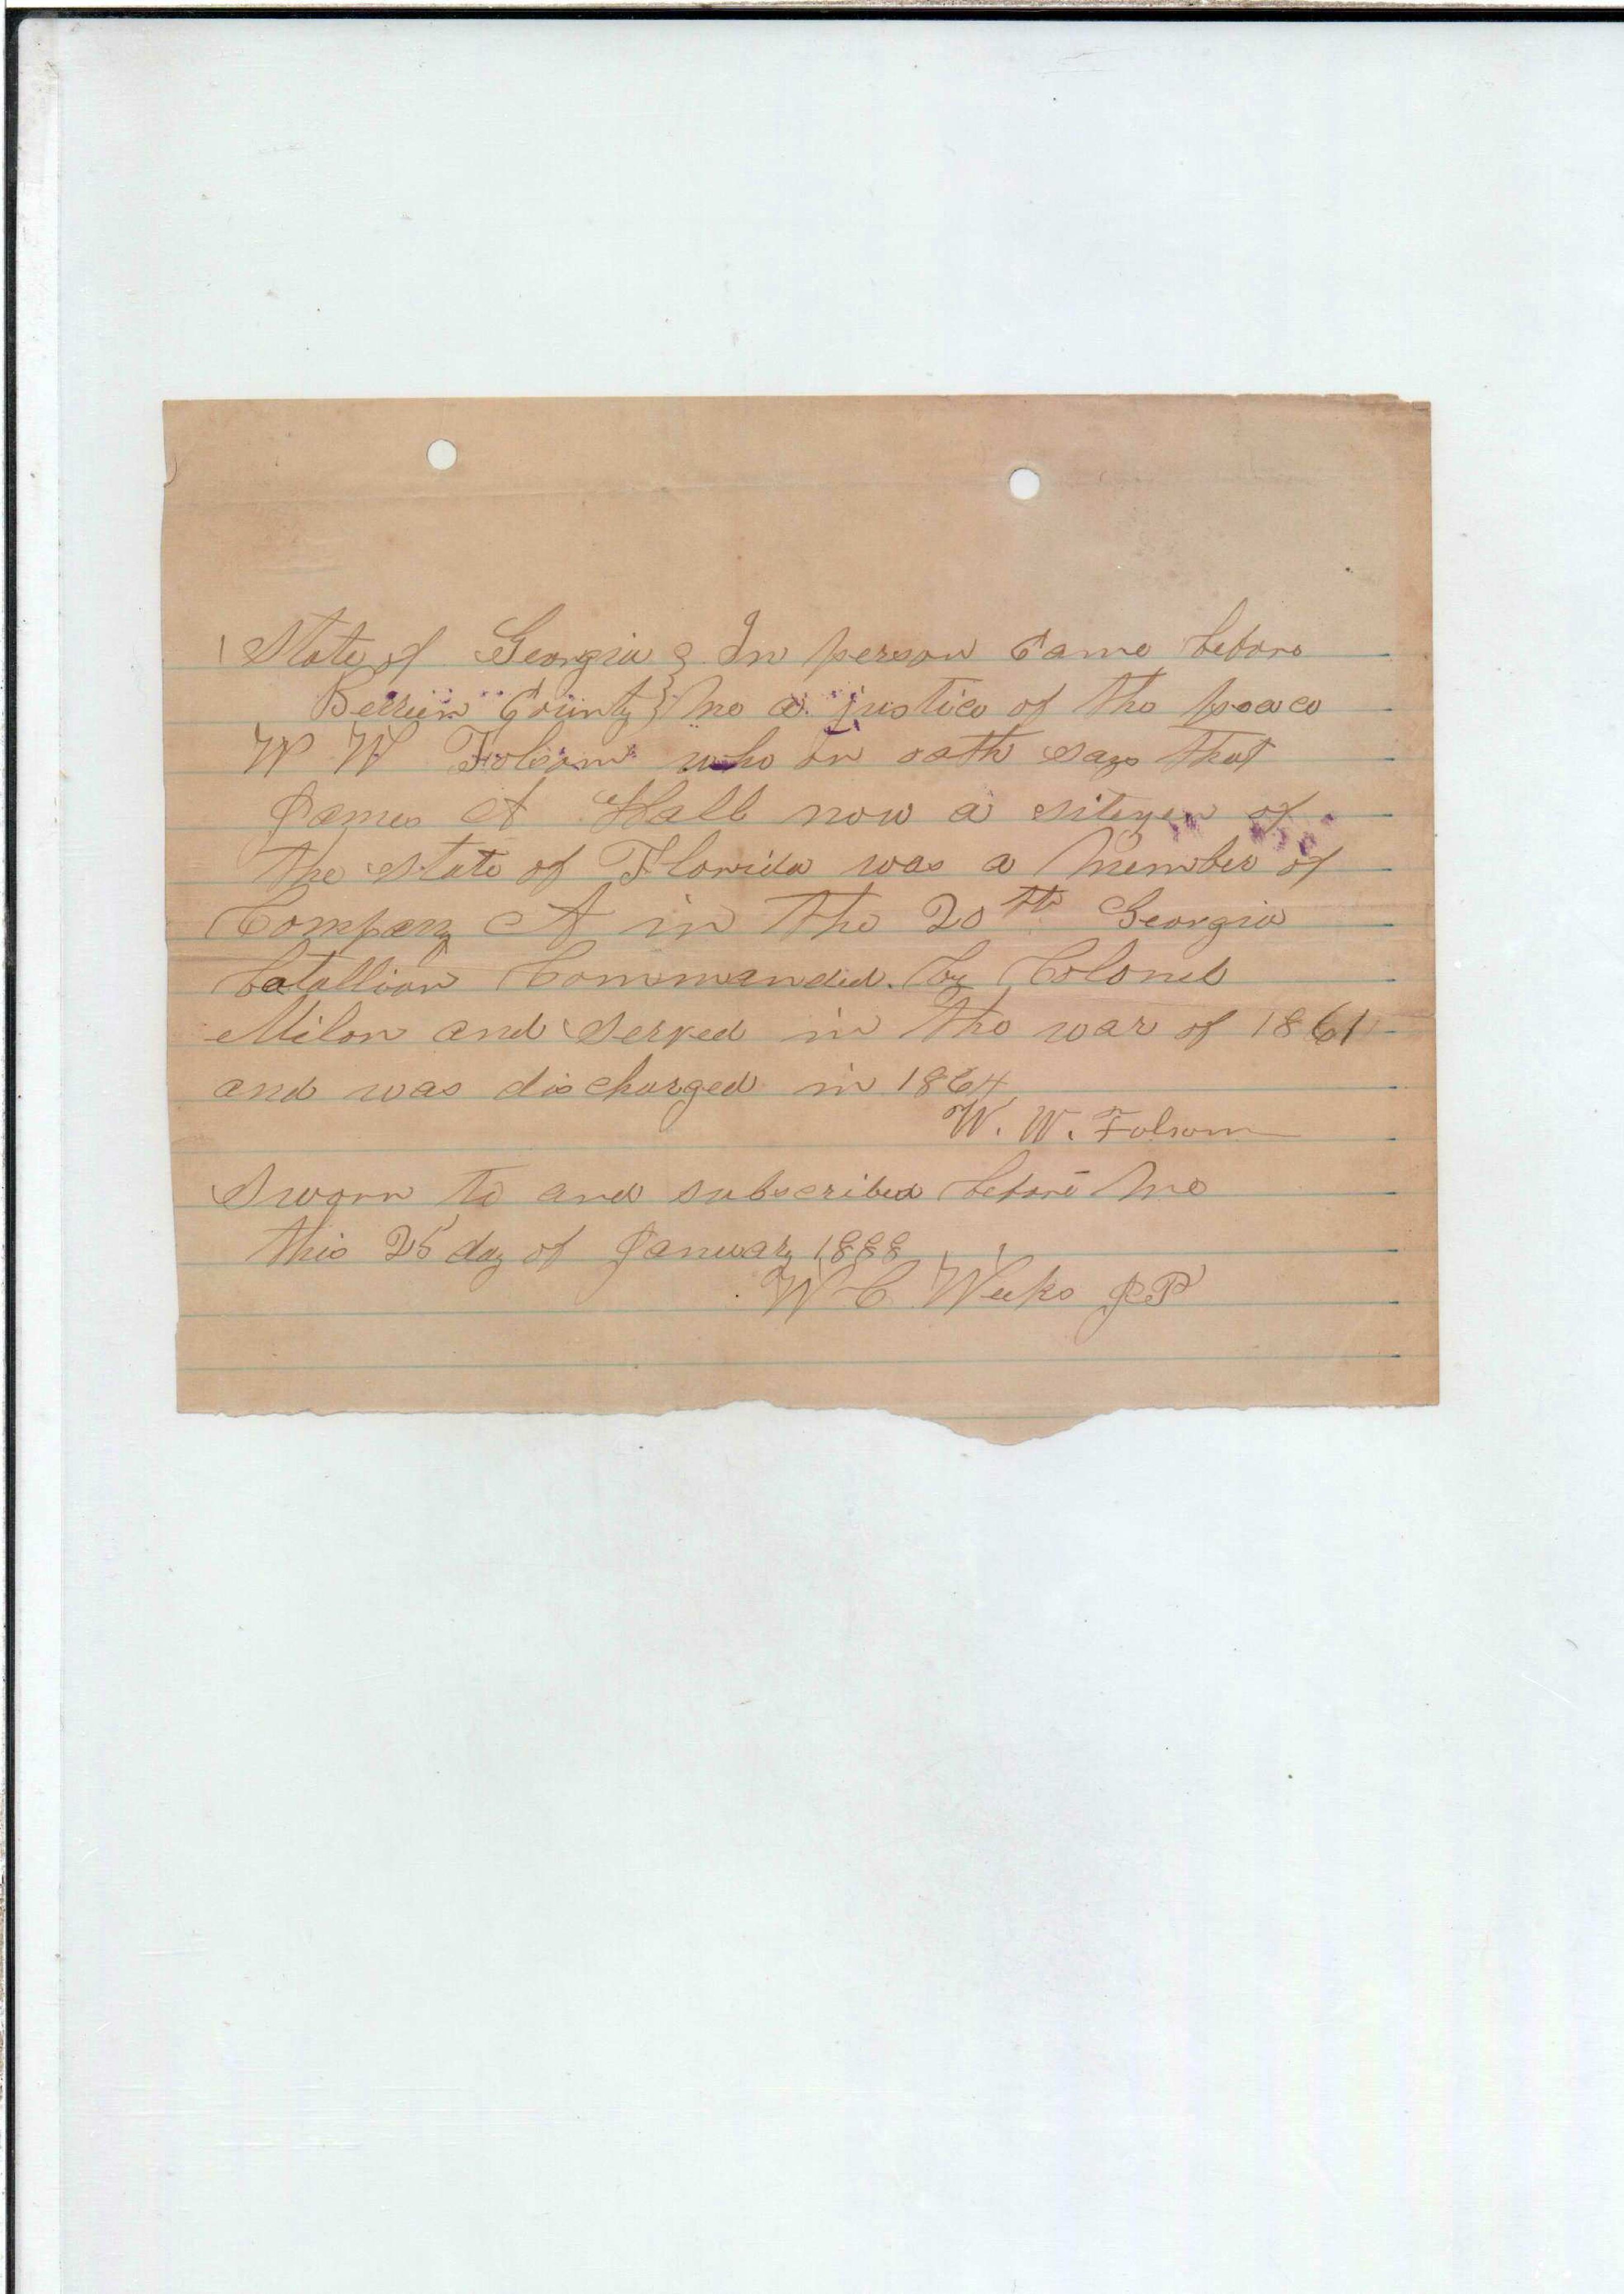 State of Georgia } In person Came before
Berrien County } me a justice of the peace
W W Folsom who on oath says that
James A Hall now a sitezen of
the state of Florida was a Member of
Company A in the 20th Georgia
batallion Commanded by Colonel
Milon and served in the war of 1861
and was discharged in 1864
W. W. Folsom
Sworn to and subscribed before me
this 25 day of January 1888
W C Weeks JP